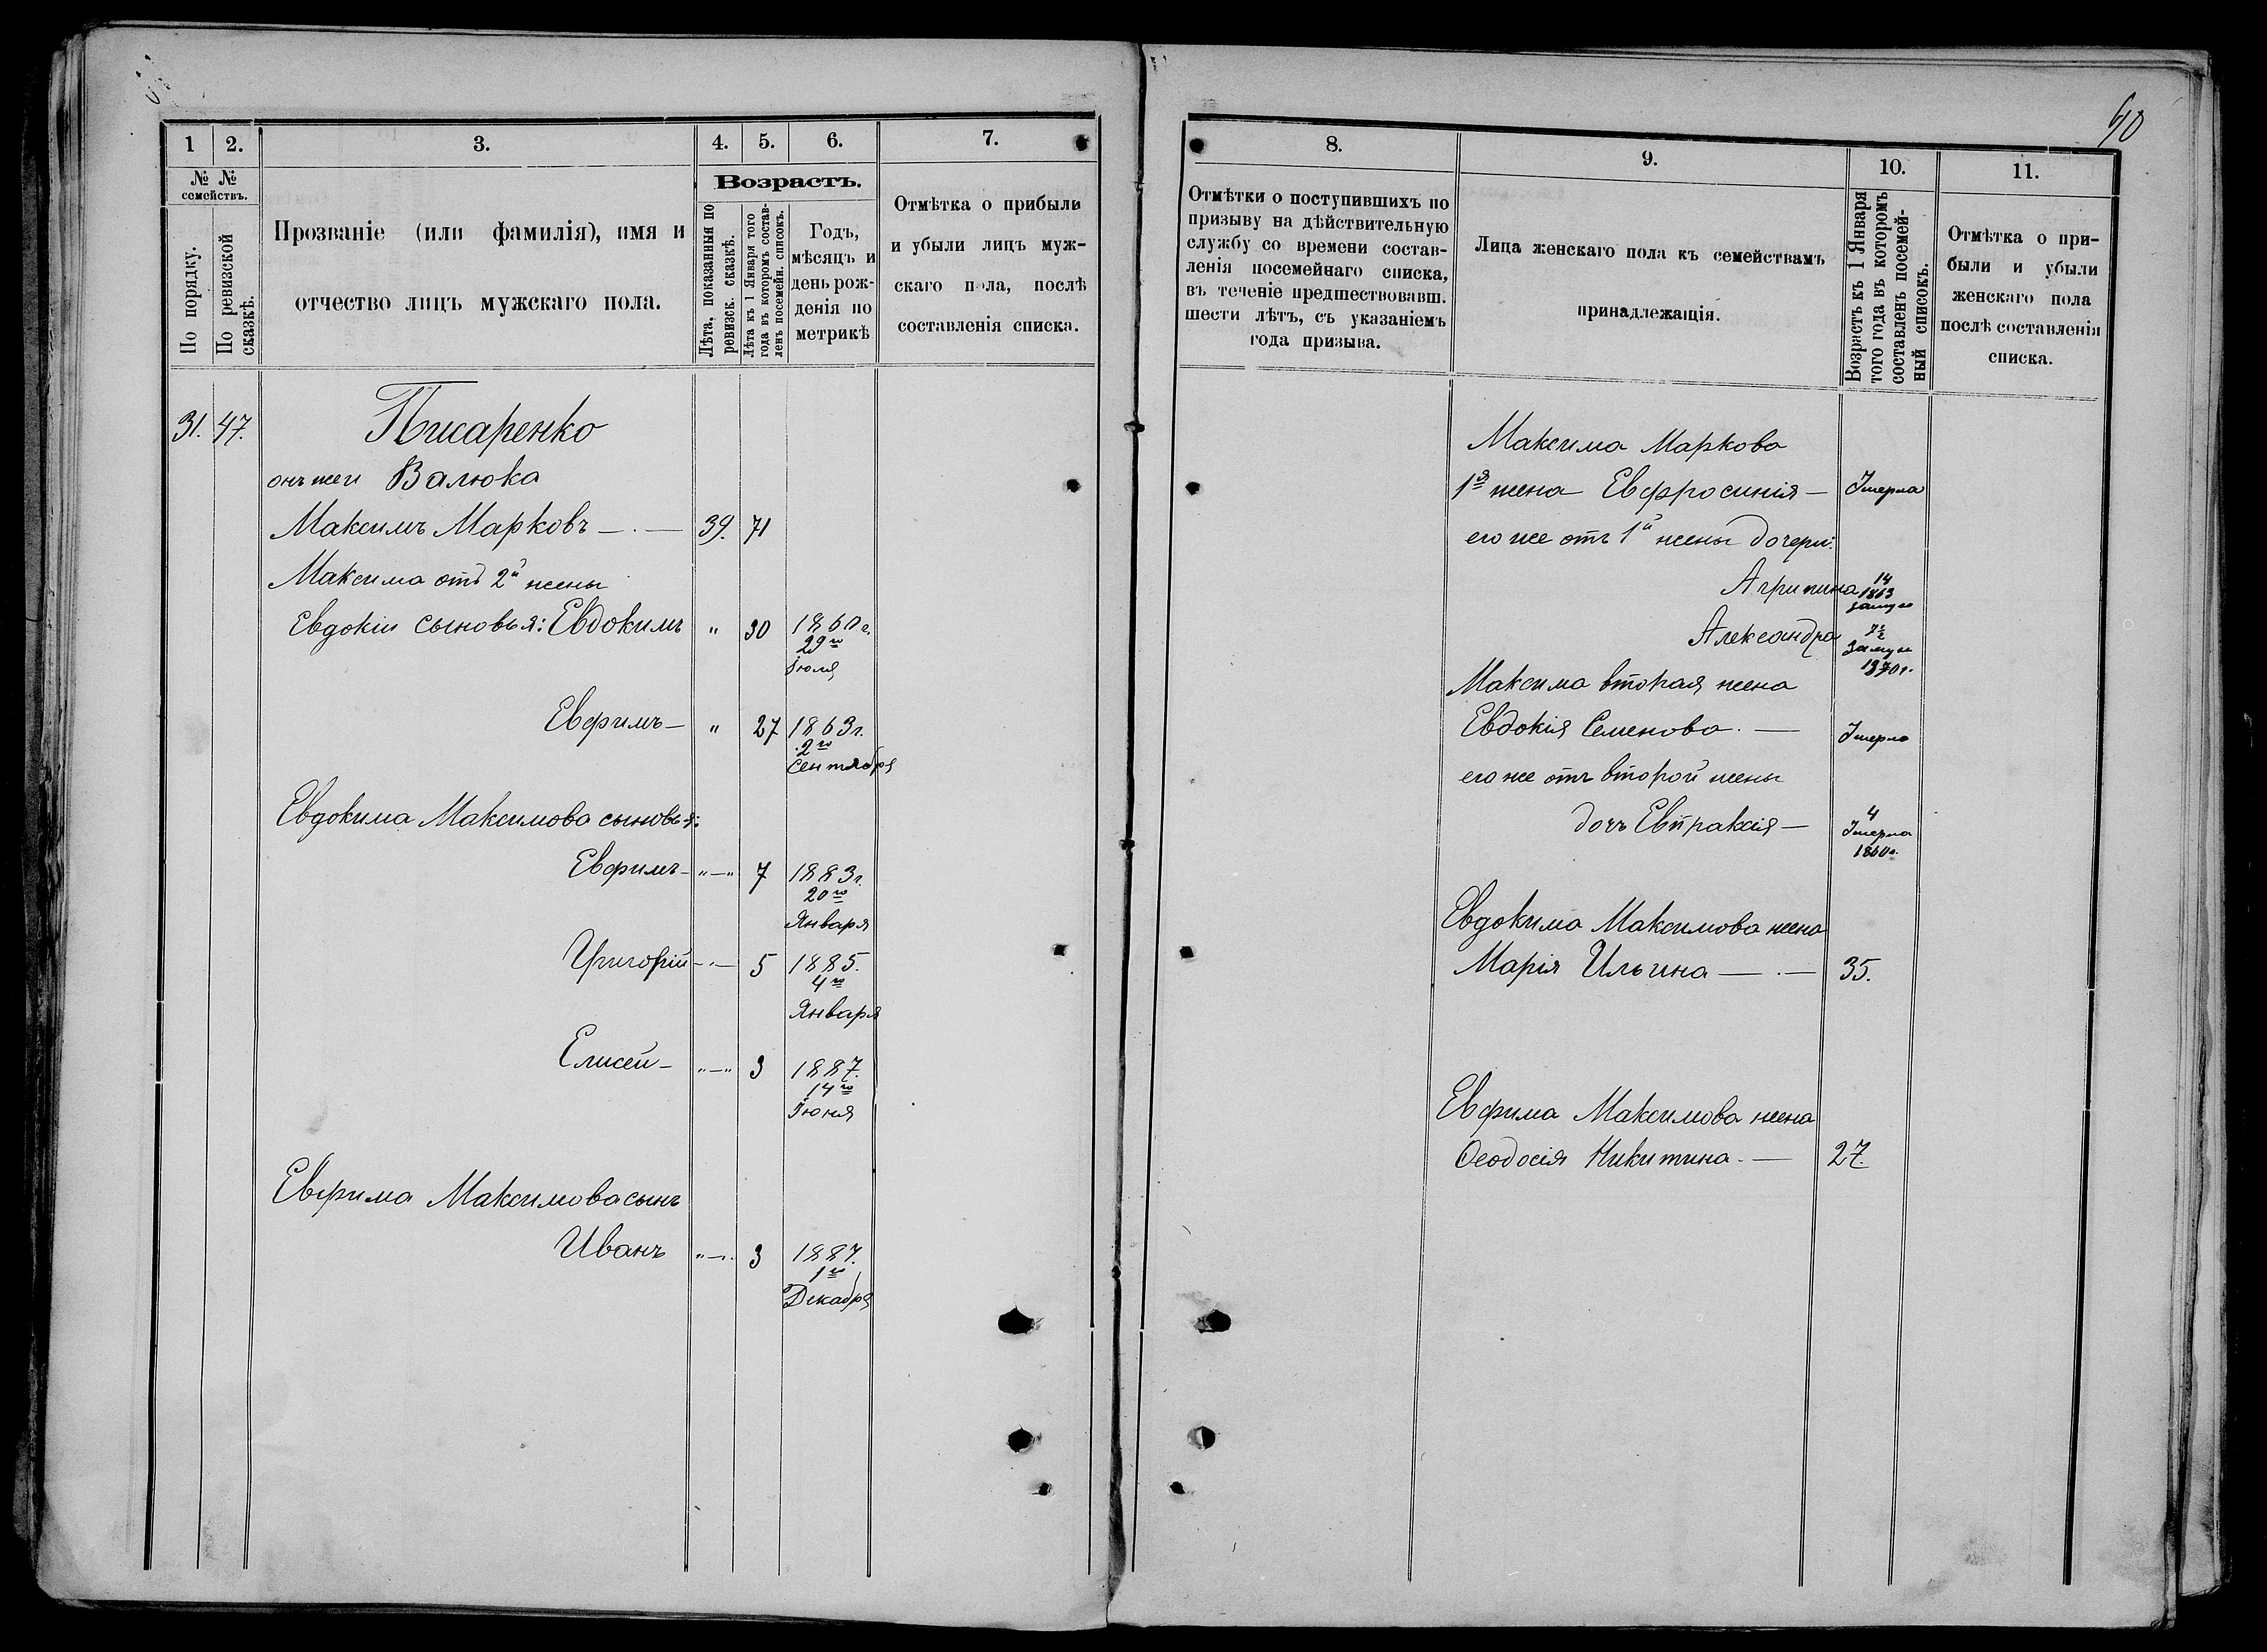 90
1 2. 3. 4. 5. 6. 7.
№ № семействъ.
По порядку.
По ревизской сказкѣ.
Прозваніе (или фамилія), имя и
отчество лицъ мужскаго пола.
Возрастъ.
Лѣта, показанныя по
ревизск. сказкѣ.
Лѣта къ 1 Января того
года въ которомъ состав-
ленъ посемейн. списокъ.
Годъ,
мѣсяцъ и
день рож-
денія по
метрикѣ
Отмѣтка о прибыли
и убыли лицъ муж-
скаго пола, послѣ
составленія списка.
31. 47. Писаренко
онъ же и Валюка
Максимъ Марковъ — . — 39. 71
Максима отъ 2й жены
Евдокіи сыновья: Евдокимъ " 30 1860 г.
29го
Іюля
Евфимъ — " 27 1863 г.
2го
Сентября
Евдокима Максимова сыновья:
Евфимъ - "—" 7 1883 г.
20го
Января
Григорій -"— 5 1885.
4го
Января
Елисей - "—" 3 1887.
14го
Іюня
Евфима Максимова сынъ
Иванъ "—" 3 1887.
1го
Декабря
8. 9. 10. 11.
Отмѣтки о поступившихъ по
призыву на дѣйствительную
службу со времени состав-
ленія посемейнаго списка,
въ теченіе предшествовавш.
шести лѣтъ, съ указаніемъ
года призыва.
Лица женскаго пола къ семействамъ
принадлежащія.
Возрастъ къ 1 Января
того года въ которомъ
составленъ посемей-
ный списокъ.
Отмѣтка о при-
были и убыли
женскаго пола
послѣ составленія
списка.
Максима Маркова
1я жена Евфросинія — Умерла
его же отъ 1й жены дочери:
Агрипина 14
1863
замуж
Александра 7½
замуж
1870 г.
Максима вторая жена
Евдокія Семенова. — Умерла
его же отъ второй жены
дочь Евпраксія — 4
Умерла
1860 г.
Евдокима Максимова жена
Марія Ильина — . — 35.
Евфима Максимова жена
Ѳеодосія Никитина. — 27.